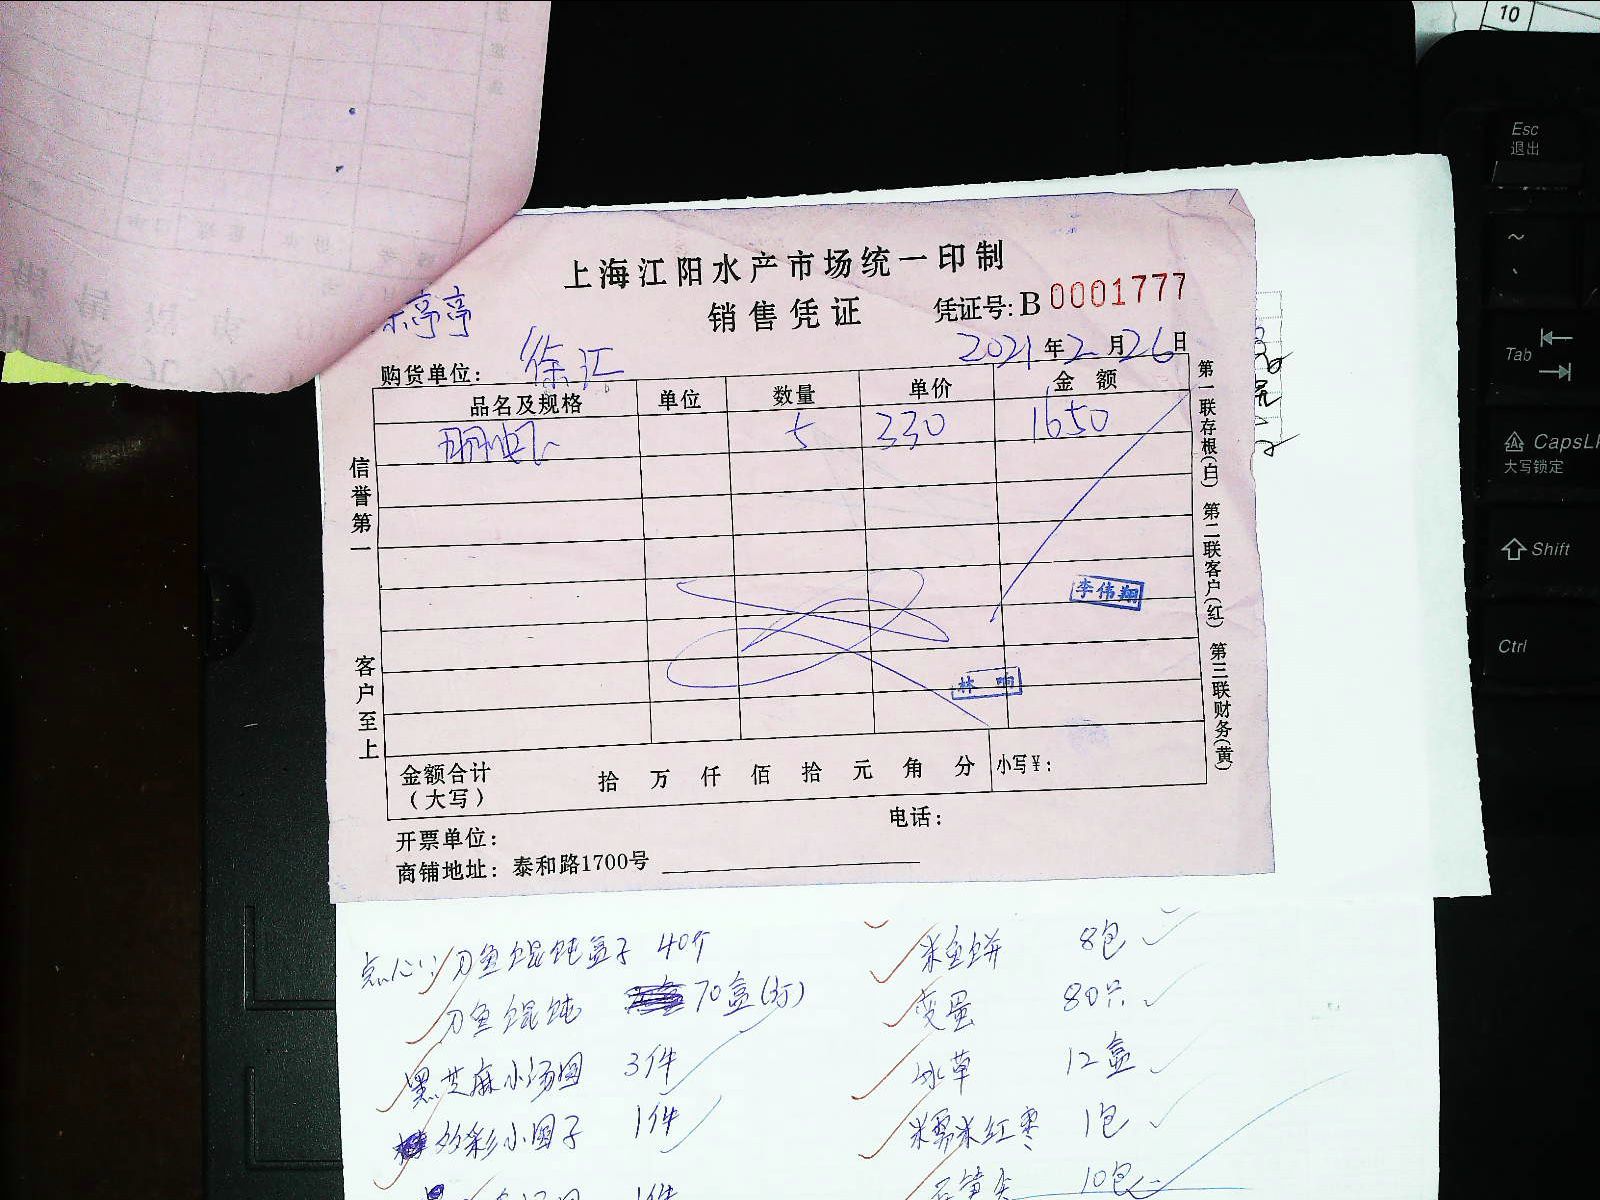 上海江阳水产市场统一印制
销售凭证 凭证号: B 0001777
亭亭
购货单位: 徐汇 2021年2月26日
品名及规格 单位 数量 单价 金额
5 330 1650
信誉第一
客户至上
第一联存根(白) 第二联客户(红) 第三联财务(黄)
李伟翔
林 响
金额合计 拾 万 仟 佰 拾 元 角 分 小写¥:
(大写)
电话:
开票单位:
商铺地址: 泰和路1700号
点心: 刀鱼馄饨盒子 40个 米鱼饼 8包
刀鱼馄饨 70盒 变蛋 80只
黑芝麻小汤圆 3件 冰草 12盒
小圆子 1件 糯米红枣 1包
10包
10
Esc
退出
~
Tab
CapsL
大写锁定
Shift
Ctrl